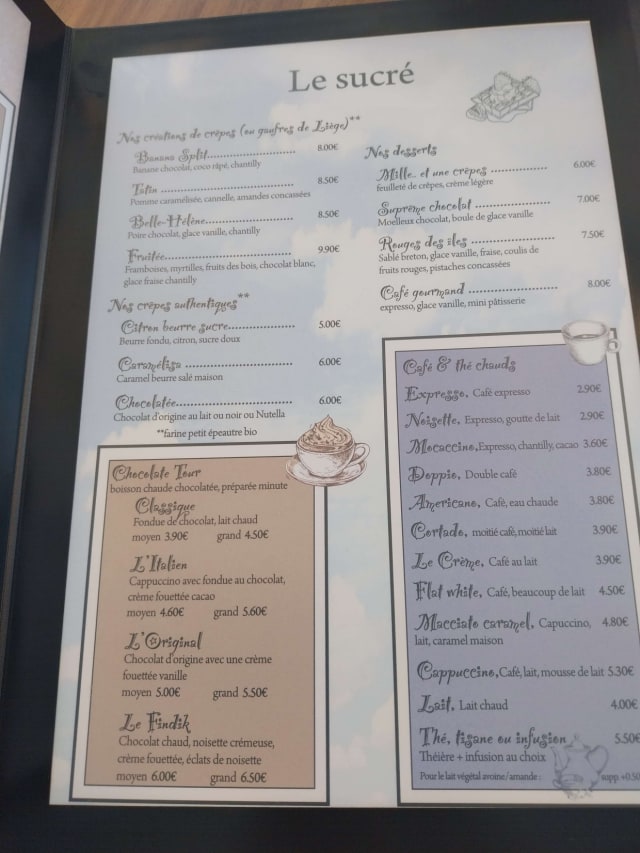 Le sucré
Nos créations de crêpes (ou gaufres de Liège)**
Banana Split..................... 8.00€
Banane chocolat, coco râpé, chantilly
Tatin ................................ 8.50€
Pomme caramélisée, cannelle, amandes concassées
Belle-Hélène..................... 8.50€
Poire chocolat, glace vanille, chantilly
Fruitée.............................. 9.90€
Framboises, myrtilles, fruits des bois, chocolat blanc,
glace fraise chantilly
Nos crêpes authentiques**
Citron beurre sucre................ 5.00€
Beurre fondu, citron, sucre doux
Caramélisa .......................... 6.00€
Caramel beurre salé maison
Chocolatée............................ 6.00€
Chocolat d'origine au lait ou noir ou Nutella
**farine petit épeautre bio
Chocolate Tour
boisson chaude chocolatée, préparée minute
Classique
Fondue de chocolat, lait chaud
moyen 3.90€ grand 4.50€
L'Italien
Cappuccino avec fondue au chocolat,
crème fouettée cacao
moyen 4.60€ grand 5.60€
L'Original
Chocolat d'origine avec une crème
fouettée vanille
moyen 5.00€ grand 5.50€
Le Findik
Chocolat chaud, noisette crémeuse,
crème fouettée, éclats de noisette
moyen 6.00€ grand 6.50€
Nos desserts
Mille.. et une crêpes ............... 6.00€
feuilleté de crêpes, crème légère
Suprême chocolat .................... 7.00€
Moelleux chocolat, boule de glace vanille
Rouges des îles ...................... 7.50€
Sablé breton, glace vanille, fraise, coulis de
fruits rouges, pistaches concassées
Café gourmand ........................ 8.00€
expresso, glace vanille, mini pâtisserie
Café & thé chauds
Expresso, Café expresso 2.90€
Noisette, Expresso, goutte de lait 2.90€
Mocaccino, Expresso, chantilly, cacao 3.60€
Doppio, Double café 3.80€
Americano, Café, eau chaude 3.80€
Cortado, moitié café, moitié lait 3.90€
Le Crème, Café au lait 3.90€
Flat white, Café, beaucoup de lait 4.50€
Macciato caramel, Capuccino, 4.80€
lait, caramel maison
Cappuccino, Café, lait, mousse de lait 5.30€
Lait, Lait chaud 4.00€
Thé, tisane ou infusion 5.50€
Théière + infusion au choix
Pour le lait végétal avoine/amande : supp. +0.50